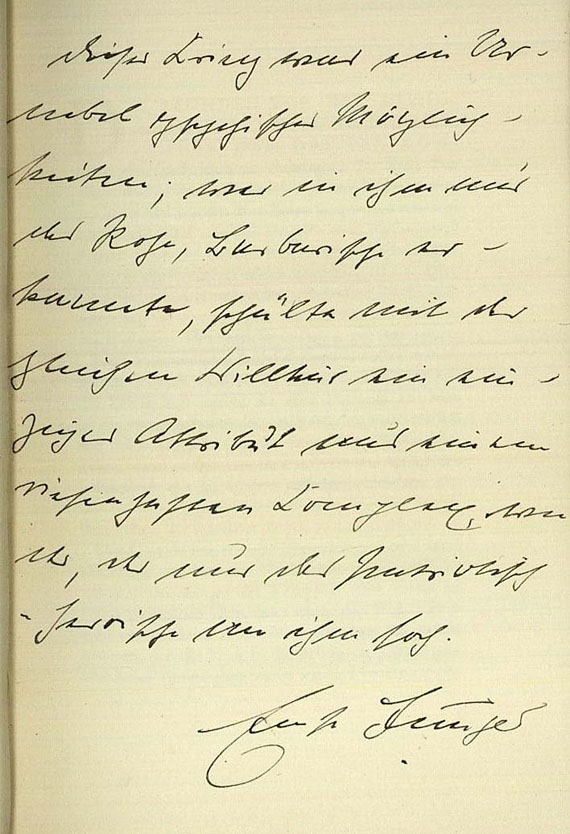 Dieser Krieg war ein Ur-
nebel psychischer Möglich-
keiten; wer in ihm nur
das Rohe, Barbarische er-
kannte, schälte mit der
gleichen Willkür ein ein-
ziges Attribut aus einem
riesenhaften Komplex, wie
der, der nur das Patriotisch
-Heroische an ihm sah.
Ernst Jünger